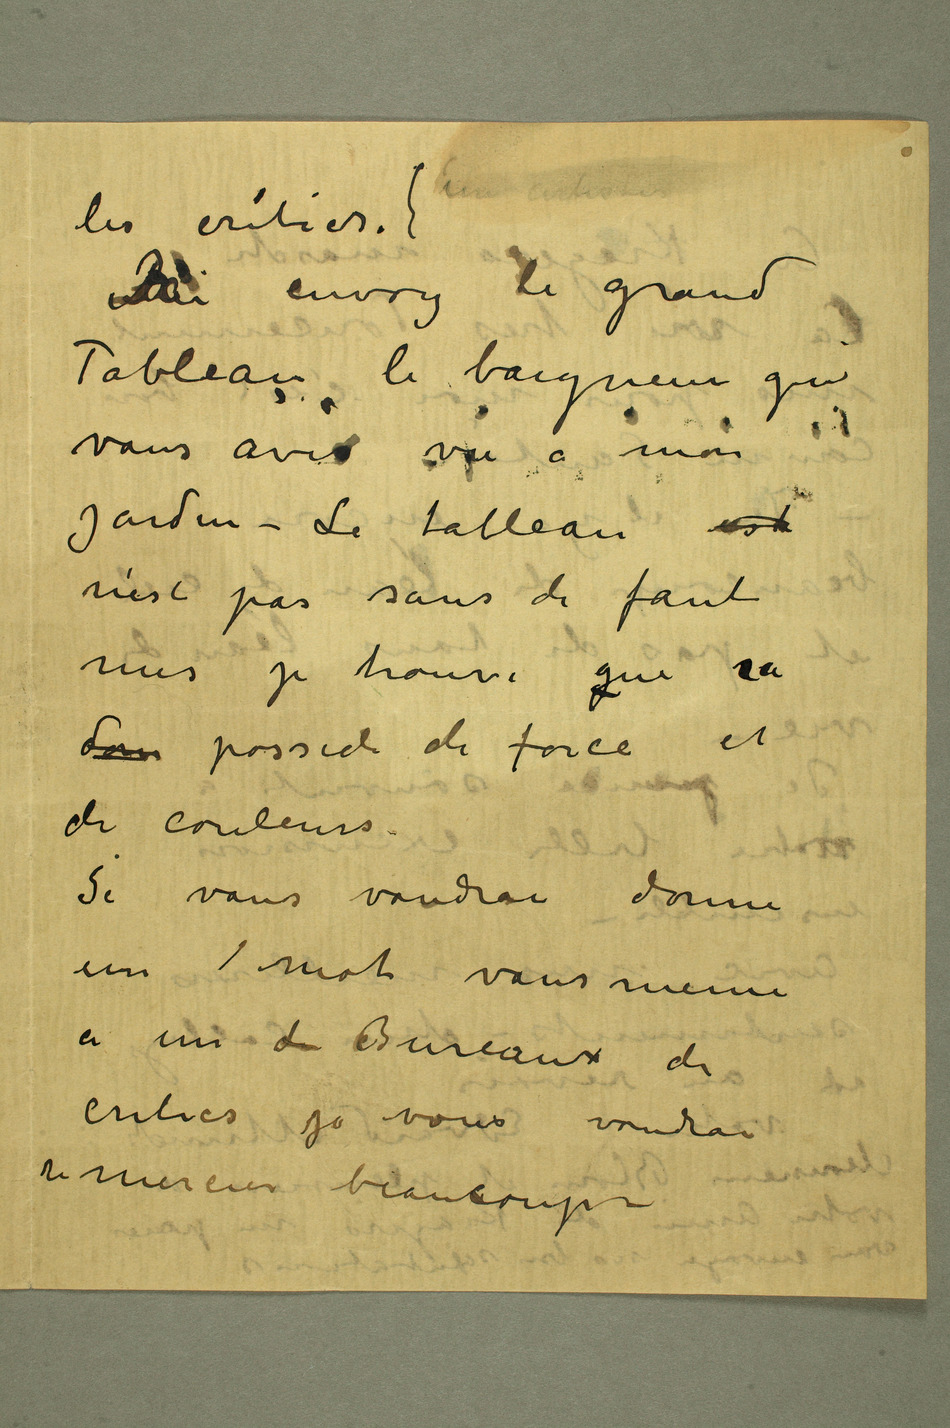 les critics.
envoy le grand
Tableau, le baigneur qui
vous aves vue a mon
jardin – Le tableau est
n'est pas sans de faut
mes je trouve que sa
dans posside de force et
de couleurs.
Si vous voudrai donne
un / mot vous meme
a un de Bureaux de
critics je vous voudrai
remercier beaucoup –